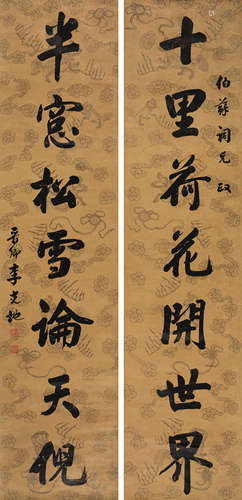 伯蘇詞兄政
十里荷花開世界
半窓松雪論天倪
晋卿李光地